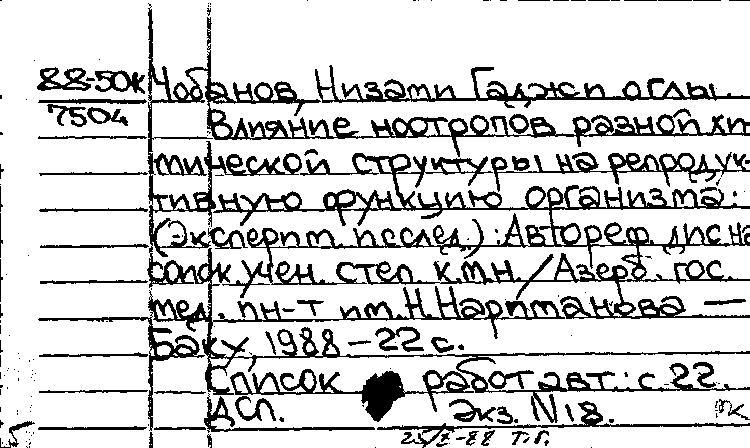 88-50к Чобанов, Низами Гаджи оглы.
7504
Влияние ноотропов разной хи-
мической структуры на репродук-
тивную функцию организма:
(Эксперим. исслед.): Автореф. дис на
соиск. учен. степ. к.м.н. / Азерб. гос.
мед. ин-т им. Н. Нариманова —
Баку, 1988 – 22 с.
Список работ авт.: с. 22.
ДСП. Экз. N 18.
25/X-88 Т.Г.